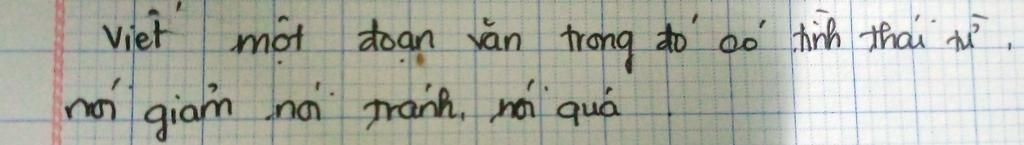 Viết một đoạn văn trong đó có tình thái từ,
nói giảm nói tránh, nói quá